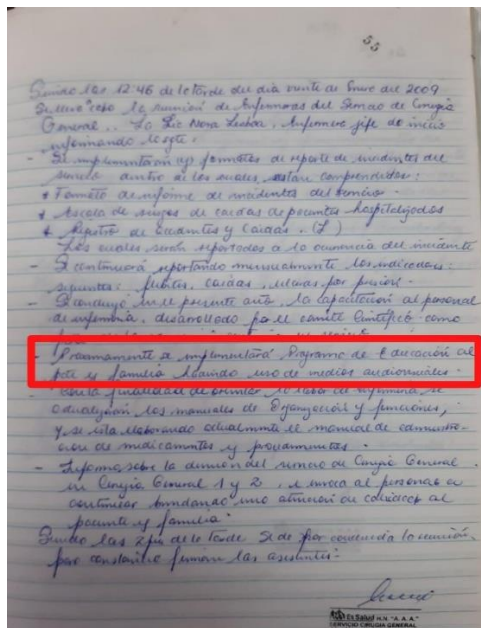 55
Siendo las 12:46 de la tarde del día veinte de Enero del 2009
Se llevó a cabo la reunión de Enfermeras del Servicio de Cirugía
General.. La Lic Nora Lesboa, Enfermera jefe da inicio
informando lo sgte:
- Se implementación de formatos de reporte de incidentes del
servicio dentro de los cuales, están comprendidos:
* Formato de informe de incidentes del servicio.
* Escala de riesgos de caídas de pacientes hospitalizados
* Registro de accidentes y caídas. (
- Los cuales serán reportados a la ocurrencia del incidente
- Se continuará reportando mensualmente los indicadores
siguientes: flebitis, caídas, úlceras por presión.
- en el presente año, la capacitación al personal
de enfermería, desarrollado por el comité científico como
- Proximamente se implementará Programa de Educación al
pcte y familia haciendo uso de medios audiovisuales.
- Con la finalidad de orientar la labor de enfermería se
los manuales de Organización y funciones,
y se esta elaborando actualmente el manual de administra-
ción de medicamentos y procedimientos.
- Informa sobre la división del servicio de Cirugía General
en Cirugía General 1 y 2, e invoca al personal a
continuar brindando una atención de calidad al
paciente y familia.
Siendo las 2 pm de la tarde se da por concluida la reunión,
por constancia firman las asistentes:
EsSalud H.N. "A.A.A."
SERVICIO CIRUGIA GENERAL